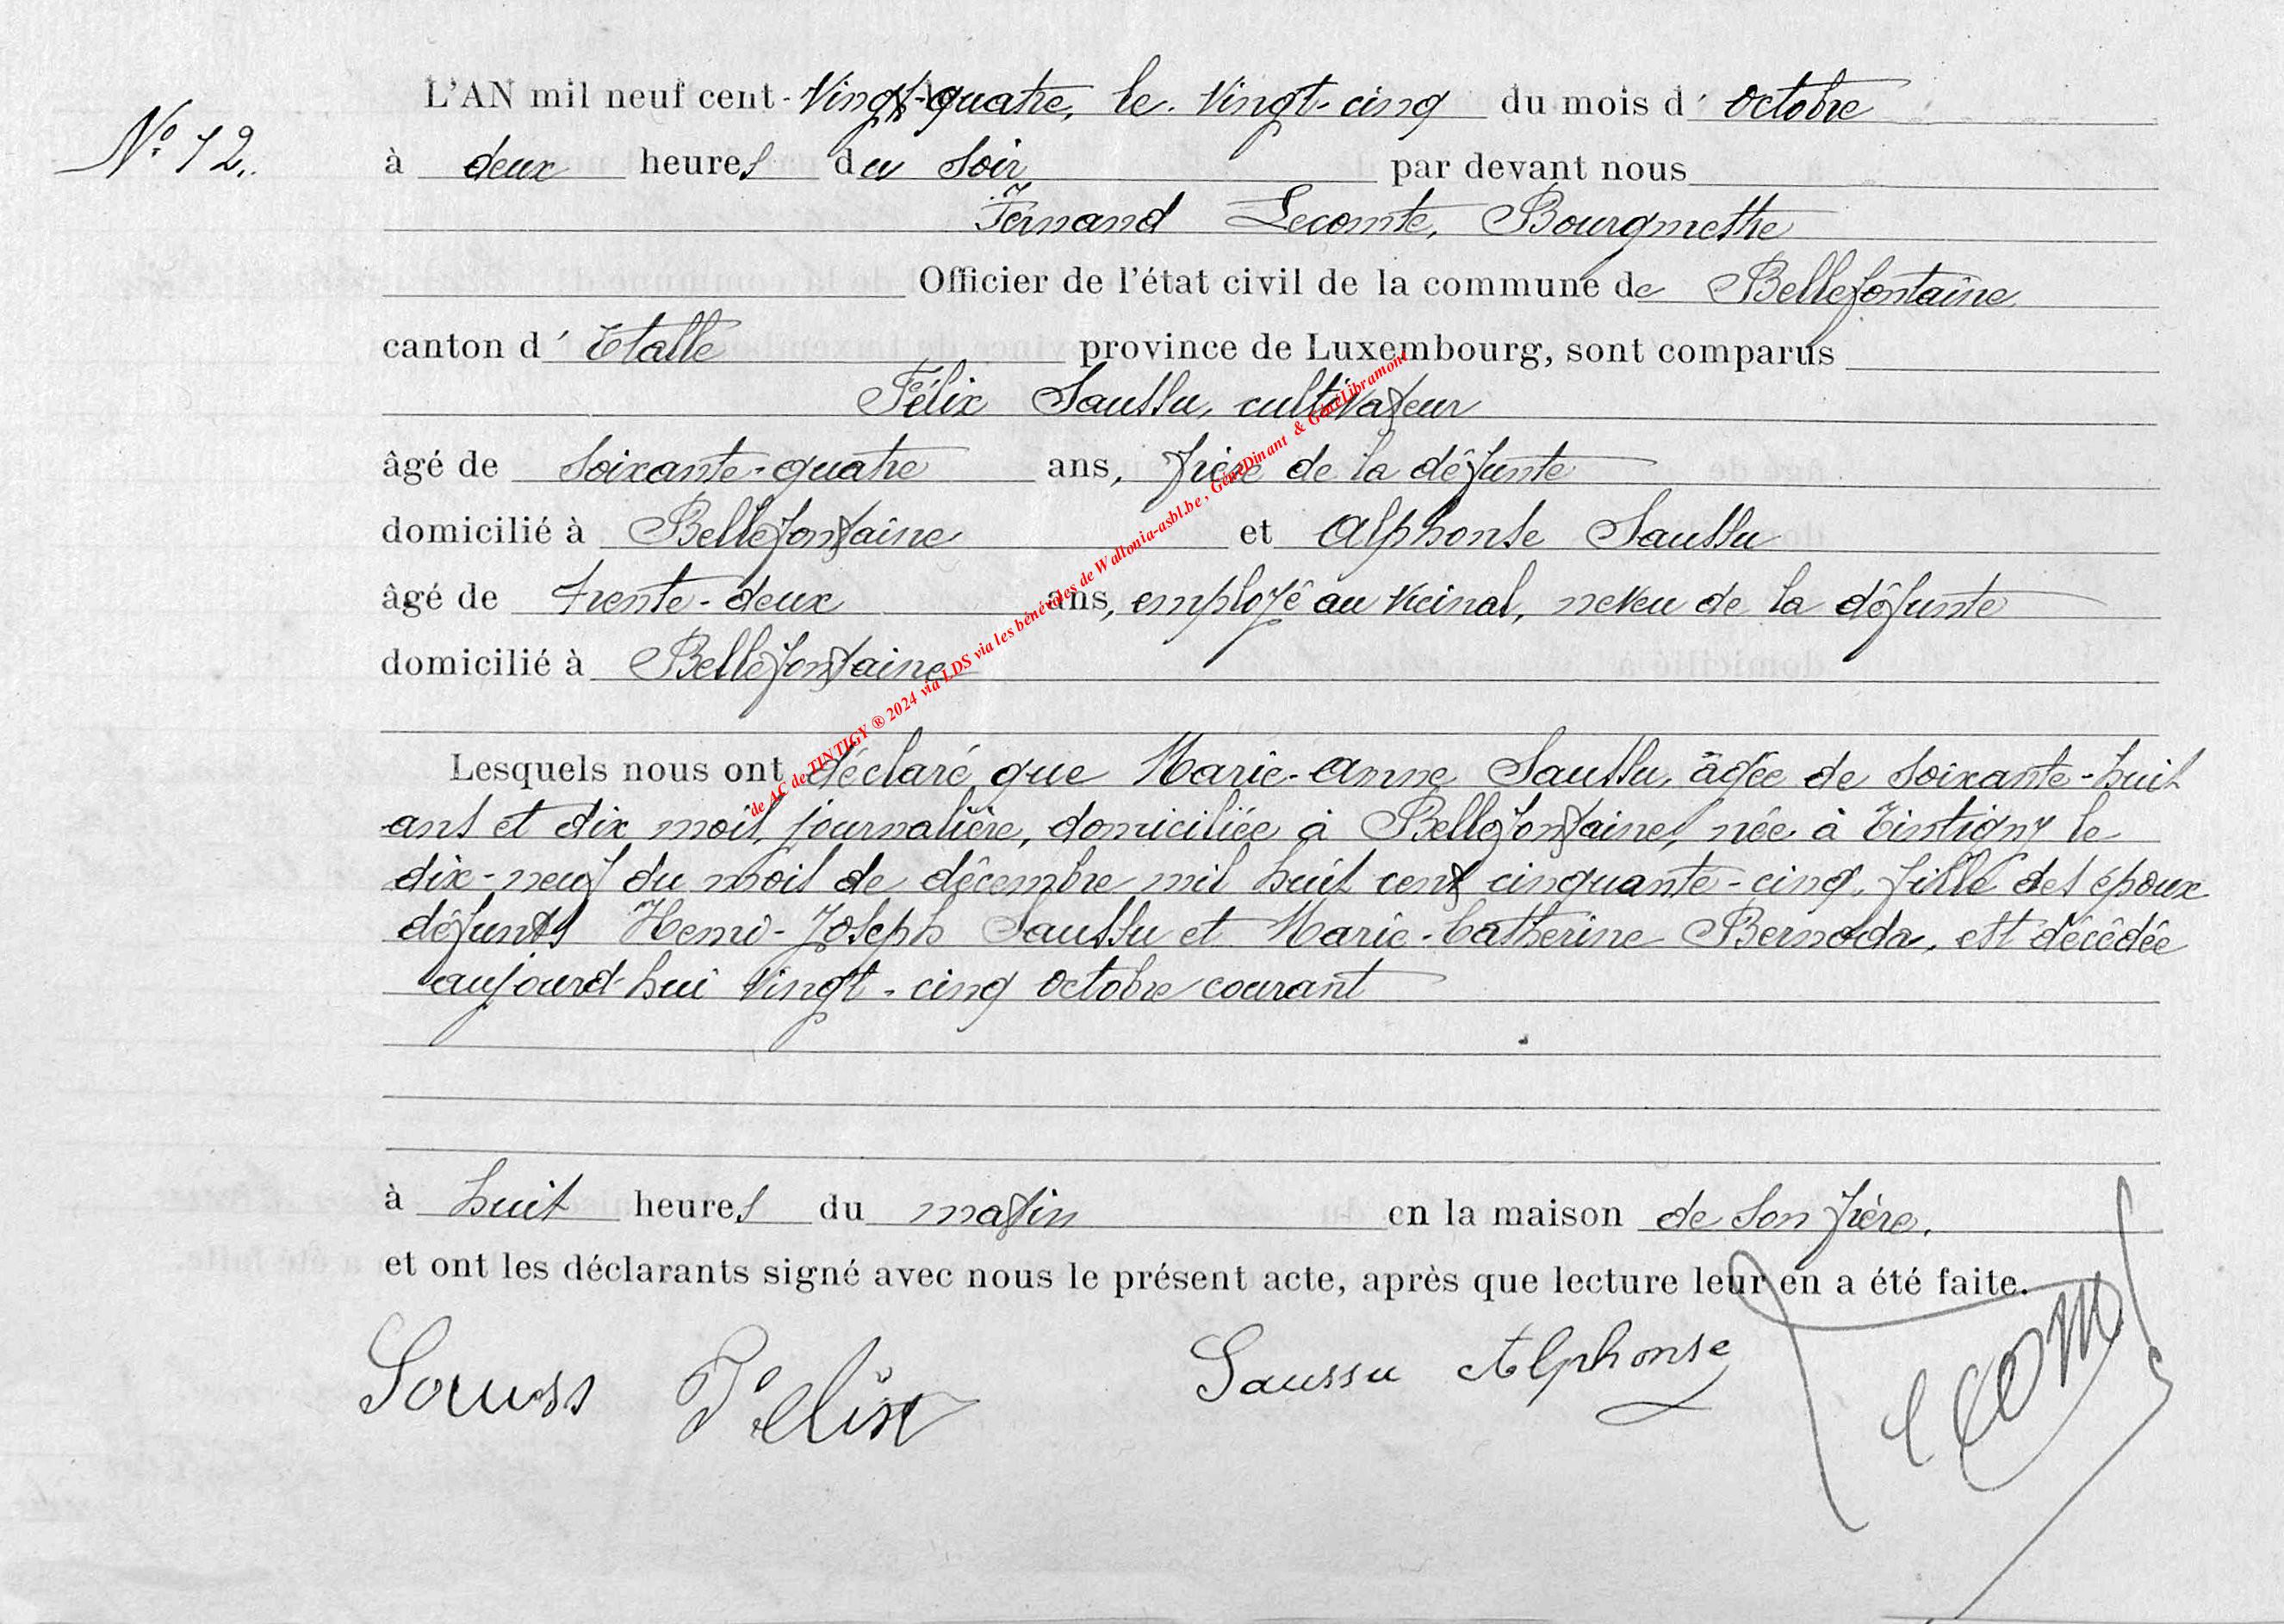 L'AN mil neuf cent - Vingt-quatre, le Vingt-cinq du mois d' octobre
N° 12.
à deux heures du soir par devant nous
Fernand Lecomte, Bourgmestre
Officier de l'état civil de la commune de Bellefontaine
canton d' Etalle province de Luxembourg, sont comparus
Félix Saussu, cultivateur
âgé de soixante-quatre ans, frère de la défunte
domicilié à Bellefontaine et Alphonse Saussu
âgé de trente-deux ans, employé au vicinal, neveu de la défunte
domicilié à Bellefontaine
de AC de TINTIGY ® 2024 via LDS via les bénévoles de Wallonia-asbl.be, GénéDinant & GénéLibramont
Lesquels nous ont déclaré que Marie-Anne Saussu, âgée de soixante-huit
ans et dix mois, journalière, domiciliée à Bellefontaine, née à Tintigny le
dix-neuf du mois de décembre mil huit cent cinquante-cinq, fille des époux
défunts Henri-Joseph Saussu et Marie-Catherine Bernoda, est décédée
aujourd'hui vingt-cinq octobre courant
à huit heures du matin en la maison de son frère.
et ont les déclarants signé avec nous le présent acte, après que lecture leur en a été faite.
Sauss Félix Saussu Alphonse Lecomt